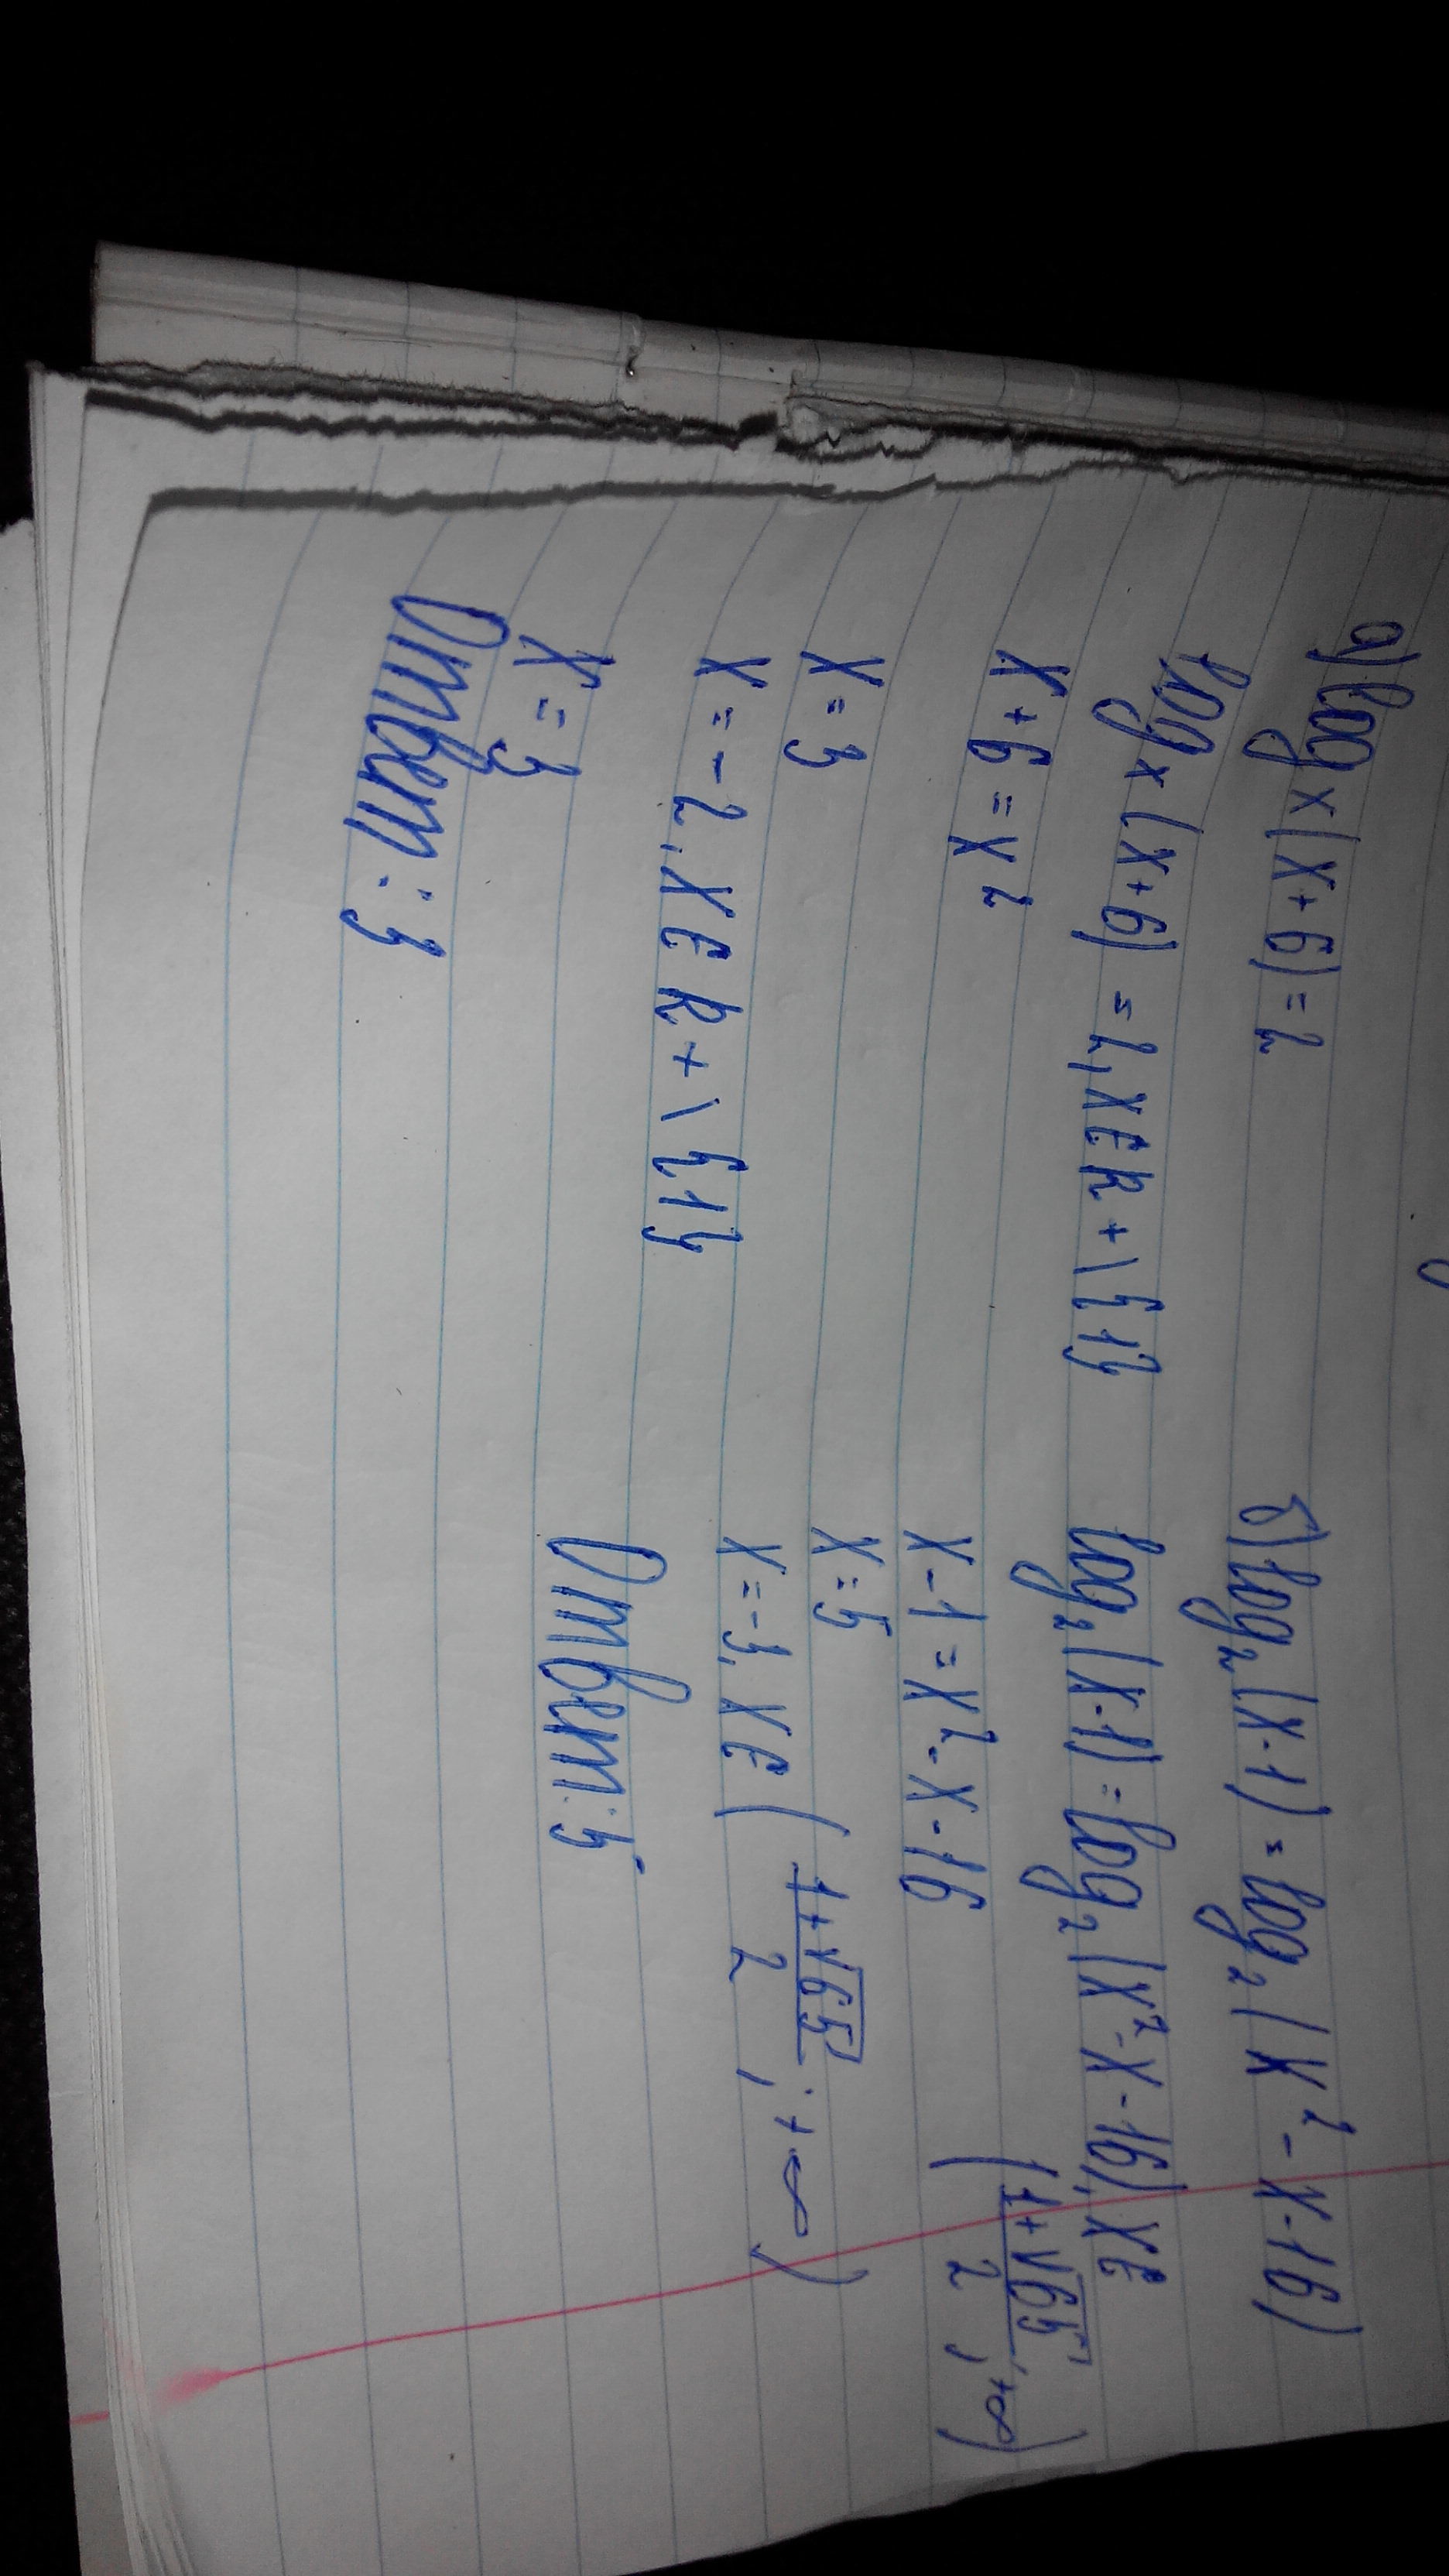 а) log x (x+6) = 2
log x (x+6) = 2, x∈R+ \ {1}
x+6 = x²
x = 3
x = -2, x∈R+ \ {1}
x = 3
Ответ: 3
б) log₂ (x-1) = log₂ (x² - x - 16)
log₂ (x-1) = log₂ (x² - x - 16), x∈
(1+√65/2 ; +∞)
x-1 = x² - x - 16
x = 5
x = -3, x∈ (1+√65/2 ; +∞)
Ответ: 5